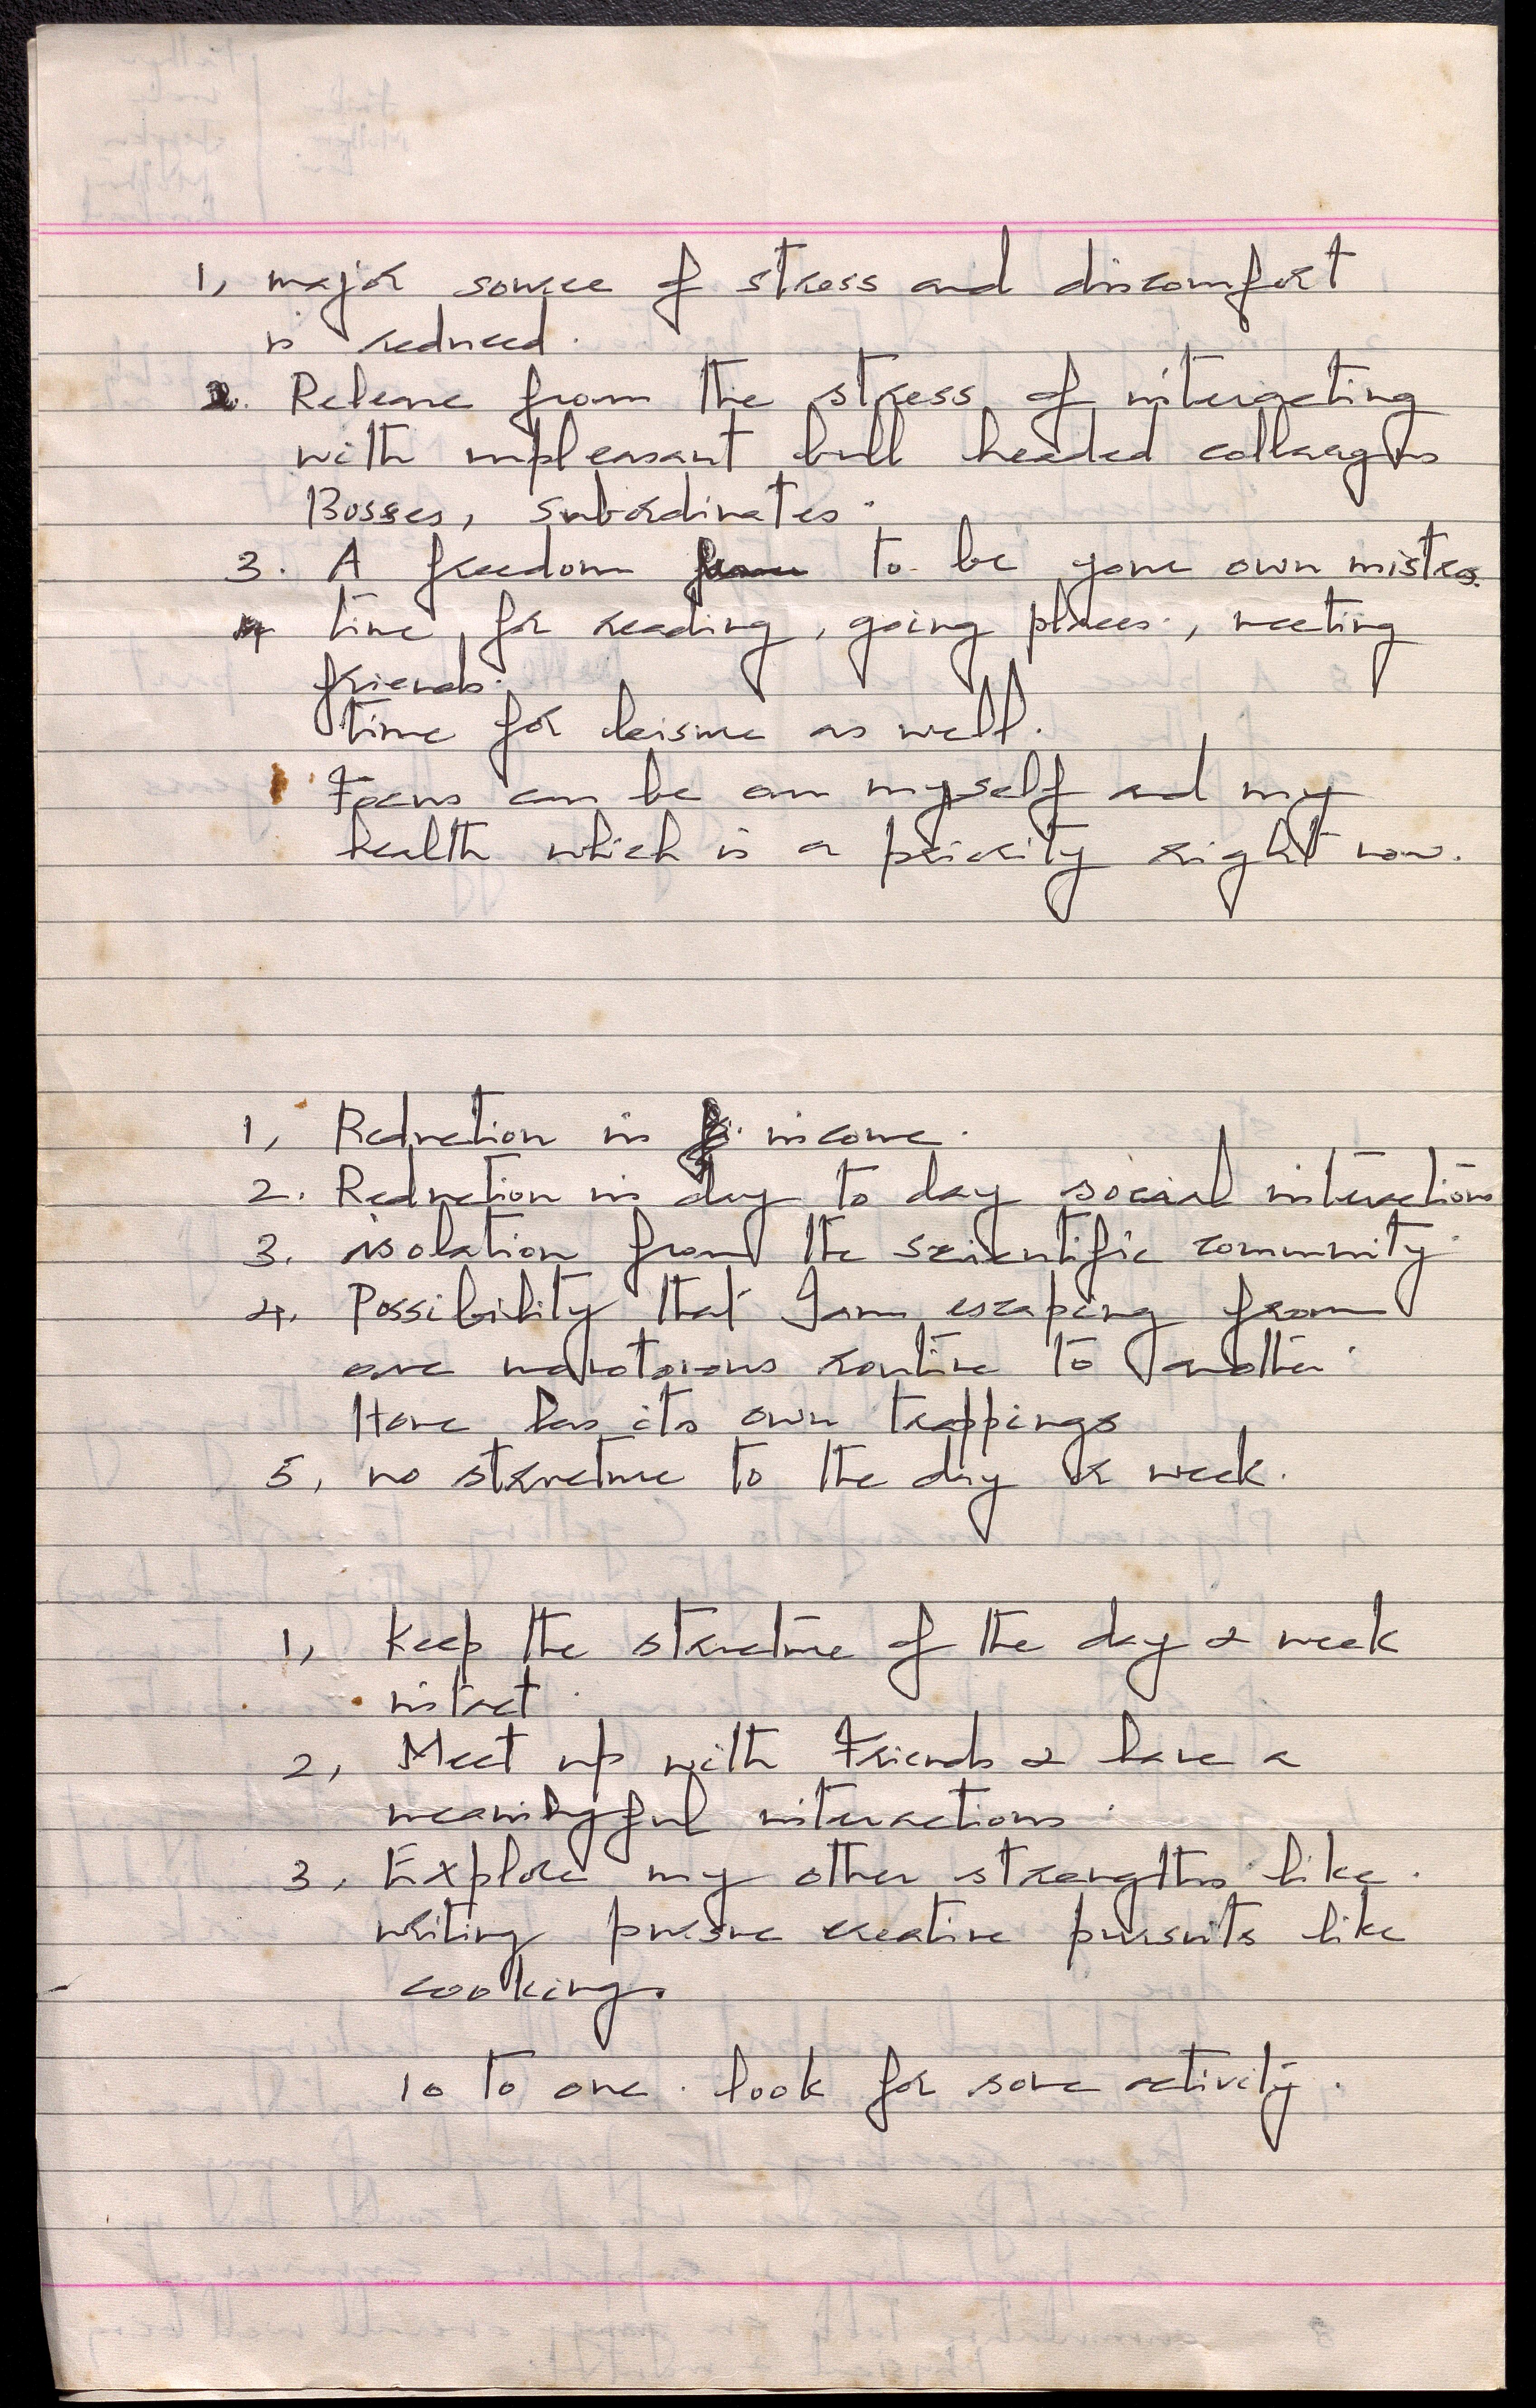 1, major source of stress and discomfort
is reduced.
2. Release from the stress of interacting
with unpleasant bull headed colleagues
Bosses, subordinates.
3. A freedom to be your own mistres.
4 time for reading, going places, meeting
friends.
time for leisure as well.
Focus can be on myself and my
health which is a priority right now.
1, Reduction in income.
2. Reduction in day to day social interactions
3. isolation from the scientific community.
4. Possibility that I am escaping from
one monotonous routine to another.
Home has its own trappings
5, no structure to the day or week.
1, Keep the structure of the day & week
intact.
2, Meet up with Friends & have a
meaningful interactions.
3, Explore my other strengths like.
writing pursue creative pursuits like
cooking.
10 to one. look for some activity.